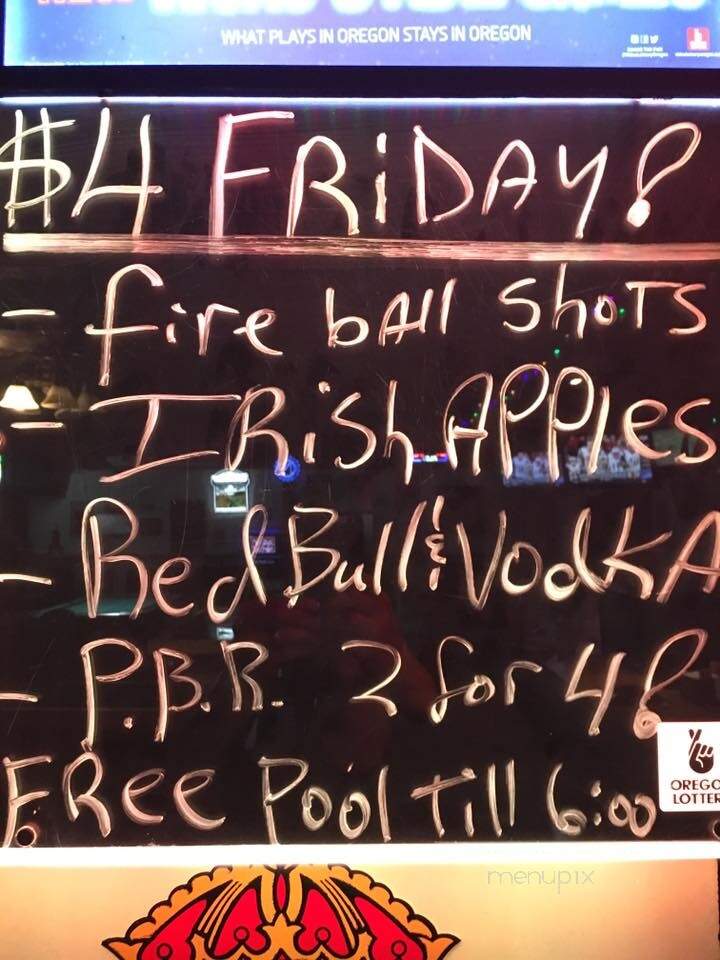 WHAT PLAYS IN OREGON STAYS IN OREGON
$4 FRiDAY!
- fire bAll ShoTS
- IRiSh APPles
- Red Bull & VodkA
- P.B.R. 2 for 4!
FRee Pool Till 6:00
OREGO
LOTTER
menupix